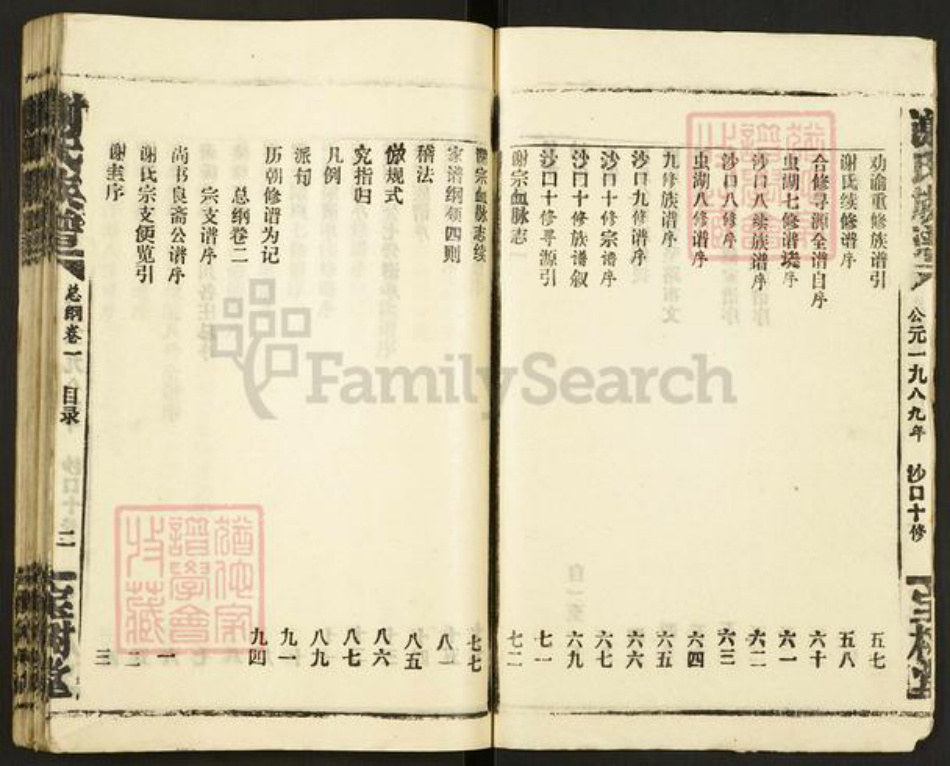 谢氏族谱
公元一九八九年 沙口十修
宝树堂
劝谕重修族谱引 五七
谢氏续修谱序 五八
合修寻源全谱自序 六十
虫湖七修谱琐序 六一
沙口八续族谱序 六二
沙口八修序 六三
虫湖八修谱序 六四
九修族谱序 六五
沙口九修谱序 六六
沙口十修宗谱序 六七
沙口十修族谱叙 六九
沙口十修寻源引 七一
谢宗血脉志 七二
谢宗血脉志续 七七
家谱纲领四则 八一
稽法 八五
仿规式 八六
究指归 八七
凡例 八九
派句 九一
历朝修谱为记 九四
总纲卷二
宗支谱序
尚书良斋公谱序 一
谢氏宗支便览引 二
谢圭序 三
谢氏族谱
总纲卷一 目录
二
宝树堂
犹他家谱学会收藏
犹他家谱学会收藏
FamilySearch